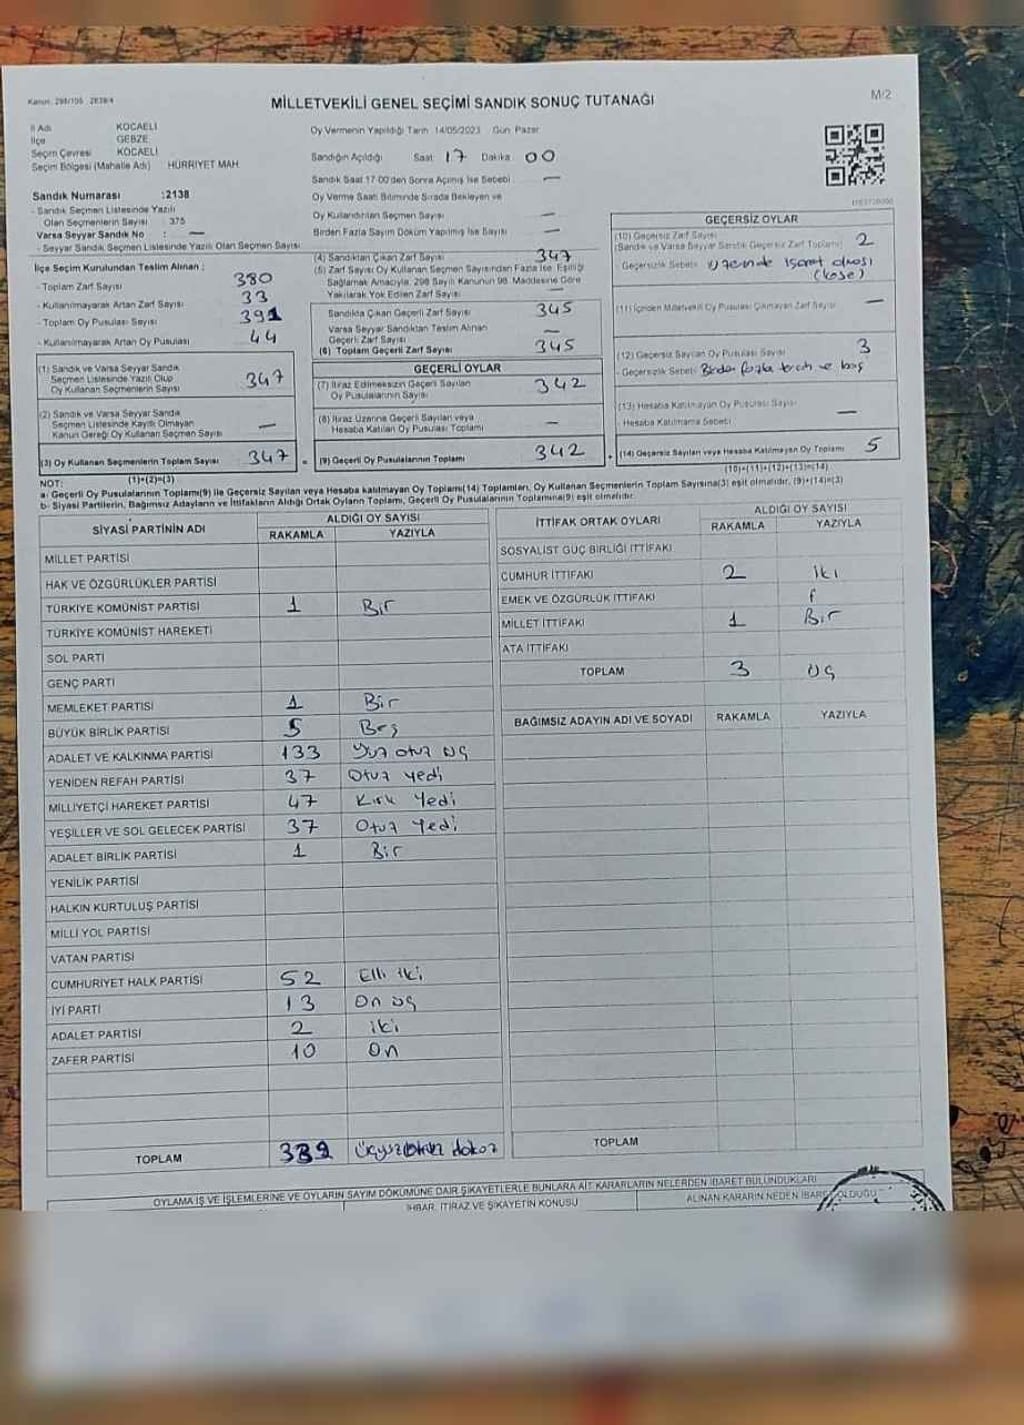 Kanun: 298/105 2839/4
MİLLETVEKİLİ GENEL SEÇİMİ SANDIK SONUÇ TUTANAĞI
M/2
İl Adı KOCAELİ
İlçe GEBZE
Seçim Çevresi KOCAELİ
Seçim Bölgesi (Mahalle Adı) HÜRRİYET MAH
Sandık Numarası :2138
- Sandık Seçmen Listesinde Yazılı
Olan Seçmenlerin Sayısı 375
Varsa Seyyar Sandık No : —
- Seyyar Sandık Seçmen Listesinde Yazılı Olan Seçmen Sayısı
Oy Vermenin Yapıldığı Tarih 14/05/2023 Gün Pazar
Sandığın Açıldığı Saat 17 Dakika 00
Sandık Saat 17:00'den Sonra Açılmış İse Sebebi —
Oy Verme Saati Bitiminde Sırada Bekleyen ve
Oy Kullandırılan Seçmen Sayısı —
Birden Fazla Sayım Döküm Yapılmış İse Sayısı —
İlçe Seçim Kurulundan Teslim Alınan :
- Toplam Zarf Sayısı 380
- Kullanılmayarak Artan Zarf Sayısı 33
- Toplam Oy Pusulası Sayısı 391
- Kullanılmayarak Artan Oy Pusulası 44
(1) Sandık ve Varsa Seyyar Sandık
Seçmen Listesinde Yazılı Olup
Oy Kullanan Seçmenlerin Sayısı 347
(2) Sandık ve Varsa Seyyar Sandık
Seçmen Listesinde Kayıtlı Olmayan
Kanun Gereği Oy Kullanan Seçmen Sayısı —
(3) Oy Kullanan Seçmenlerin Toplam Sayısı 347
(1)+(2)=(3)
(4) Sandıktan Çıkan Zarf Sayısı 347
(5) Zarf Sayısı Oy Kullanan Seçmen Sayısından Fazla İse, Eşitliği
Sağlamak Amacıyla, 298 Sayılı Kanunun 98. Maddesine Göre
Yakılarak Yok Edilen Zarf Sayısı —
Sandıkta Çıkan Geçerli Zarf Sayısı 345
Varsa Seyyar Sandıktan Teslim Alınan
Geçerli Zarf Sayısı —
(6) Toplam Geçerli Zarf Sayısı 345
GEÇERLİ OYLAR
(7) İtiraz Edilmeksizin Geçerli Sayılan
Oy Pusulalarının Sayısı 342
(8) İtiraz Üzerine Geçerli Sayılan veya
Hesaba Katılan Oy Pusulası Toplamı —
(9) Geçerli Oy Pusulalarının Toplamı 342
GEÇERSİZ OYLAR
(10) Geçersiz Zarf Sayısı
(Sandık ve Varsa Seyyar Sandık Geçersiz Zarf Toplamı) 2
- Geçersizlik Sebebi işaret olması
(11) İçinden Milletvekili Oy Pusulası Çıkmayan Zarf Sayısı —
(12) Geçersiz Sayılan Oy Pusulası Sayısı 3
- Geçersizlik Sebebi Birden fazla tercih ve boş
(13) Hesaba Katılmayan Oy Pusulası Sayısı
- Hesaba Katılmama Sebebi —
(14) Geçersiz Sayılan veya Hesaba Katılmayan Oy Toplamı 5
(10)+(11)+(12)+(13)=(14)
NOT:
a- Geçerli Oy Pusulalarının Toplamı(9) ile Geçersiz Sayılan veya Hesaba katılmayan Oy Toplamı(14) Toplamları, Oy Kullanan Seçmenlerin Toplam Sayısına(3) eşit olmalıdır. (9)+(14)=(3)
b- Siyasi Partilerin, Bağımsız Adayların ve İttifakların Aldığı Ortak Oyların Toplamı, Geçerli Oy Pusulalarının Toplamına(9) eşit olmalıdır.
SİYASİ PARTİNİN ADI ALDIĞI OY SAYISI
RAKAMLA YAZIYLA
MİLLET PARTİSİ
HAK VE ÖZGÜRLÜKLER PARTİSİ
TÜRKİYE KOMÜNİST PARTİSİ 1 Bir
TÜRKİYE KOMÜNİST HAREKETİ
SOL PARTİ
GENÇ PARTİ
MEMLEKET PARTİSİ 1 Bir
BÜYÜK BİRLİK PARTİSİ 5 Beş
ADALET VE KALKINMA PARTİSİ 133 Yüz otuz üç
YENİDEN REFAH PARTİSİ 37 Otuz yedi
MİLLİYETÇİ HAREKET PARTİSİ 47 Kırk Yedi
YEŞİLLER VE SOL GELECEK PARTİSİ 37 Otuz Yedi
ADALET BİRLİK PARTİSİ 1 Bir
YENİLİK PARTİSİ
HALKIN KURTULUŞ PARTİSİ
MİLLİ YOL PARTİSİ
VATAN PARTİSİ
CUMHURİYET HALK PARTİSİ 52 Elli iki
İYİ PARTİ 13 On üç
ADALET PARTİSİ 2 iki
ZAFER PARTİSİ 10 On
TOPLAM 339
İTTİFAK ORTAK OYLARI ALDIĞI OY SAYISI
RAKAMLA YAZIYLA
SOSYALİST GÜÇ BİRLİĞİ İTTİFAKI
CUMHUR İTTİFAKI 2 İki
EMEK VE ÖZGÜRLÜK İTTİFAKI
MİLLET İTTİFAKI 1 Bir
ATA İTTİFAKI
TOPLAM 3 üç
BAĞIMSIZ ADAYIN ADI VE SOYADI RAKAMLA YAZIYLA
TOPLAM
OYLAMA İŞ VE İŞLEMLERİNE VE OYLARIN SAYIM DÖKÜMÜNE DAİR ŞİKAYETLERLE BUNLARA AİT KARARLARIN NELERDEN İBARET BULUNDUKLARI
İHBAR, İTİRAZ VE ŞİKAYETİN KONUSU
ALINAN KARARIN NEDEN İBARET OLDUĞU